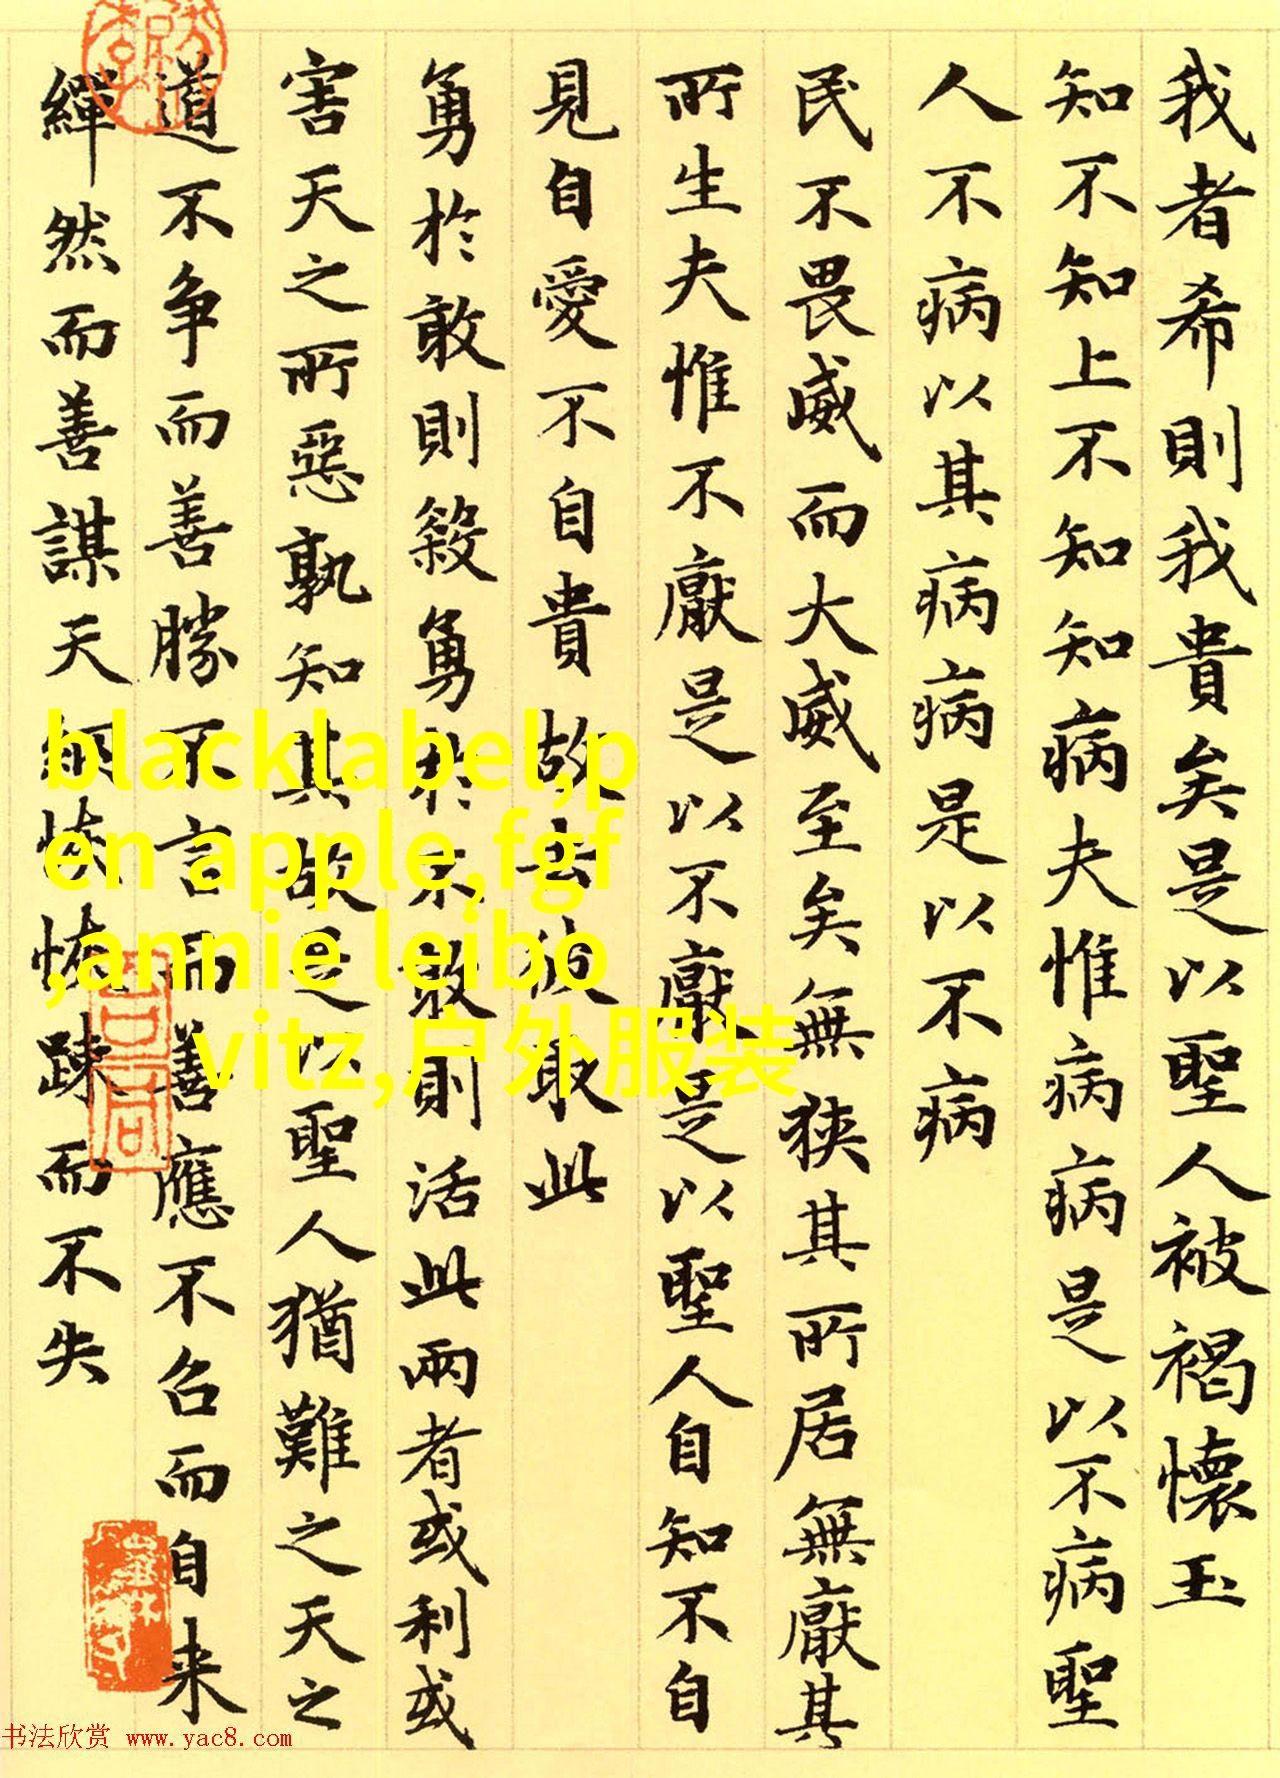 我者希則我貴矣是以聖人被褐懷玉
知不知上不知知病夫惟病病是以不病聖
人不病以其病病是以不病
民不畏威而大威至矣無狹其所居無厭其
所生夫惟不厭是以不厭是以聖人自知不自
見自愛不自貴故去彼取此
勇於敢則殺勇於不敢則活此兩者或利或
害天之所惡孰知其故是以聖人猶難之天之
道不争而善勝不言而善應不召而自来
繟然而善謀天網恢恢踈而不失
blacklabel,p
en apple,fgf
,annie leibo
vitz,户外服装
书法欣赏 www.yac8.com